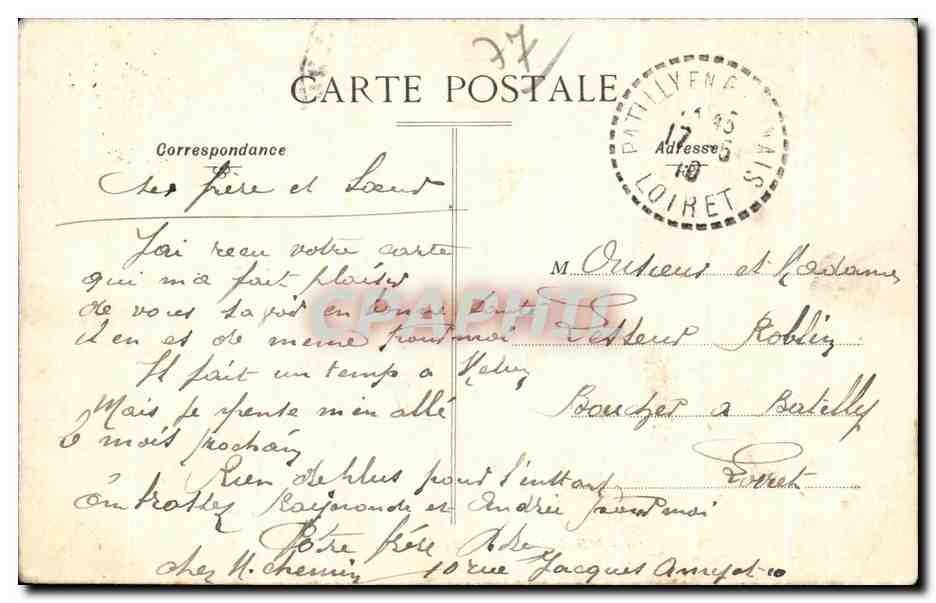 77
CARTE POSTALE
BATILLY EN G MAIS
17 - 5
10
LOIRET
Correspondance
Adresse
Cher frère et Sœur
J'ai recu votre carte
qui ma fait plaisir
de vous savoir en bonne santé
il en es de meme pour moi
Il fait un temp a
Mais je pense m'en allé
le mois prochain
Rien de plus pour l'instant
Raymonde et Andrée pour moi
Votre frère
chez M. Chemin 10 rue Jacques Amyot 10
CPAPHIL
M Onsieur et Madame
Robley
Boucher a Batilly
Loiret